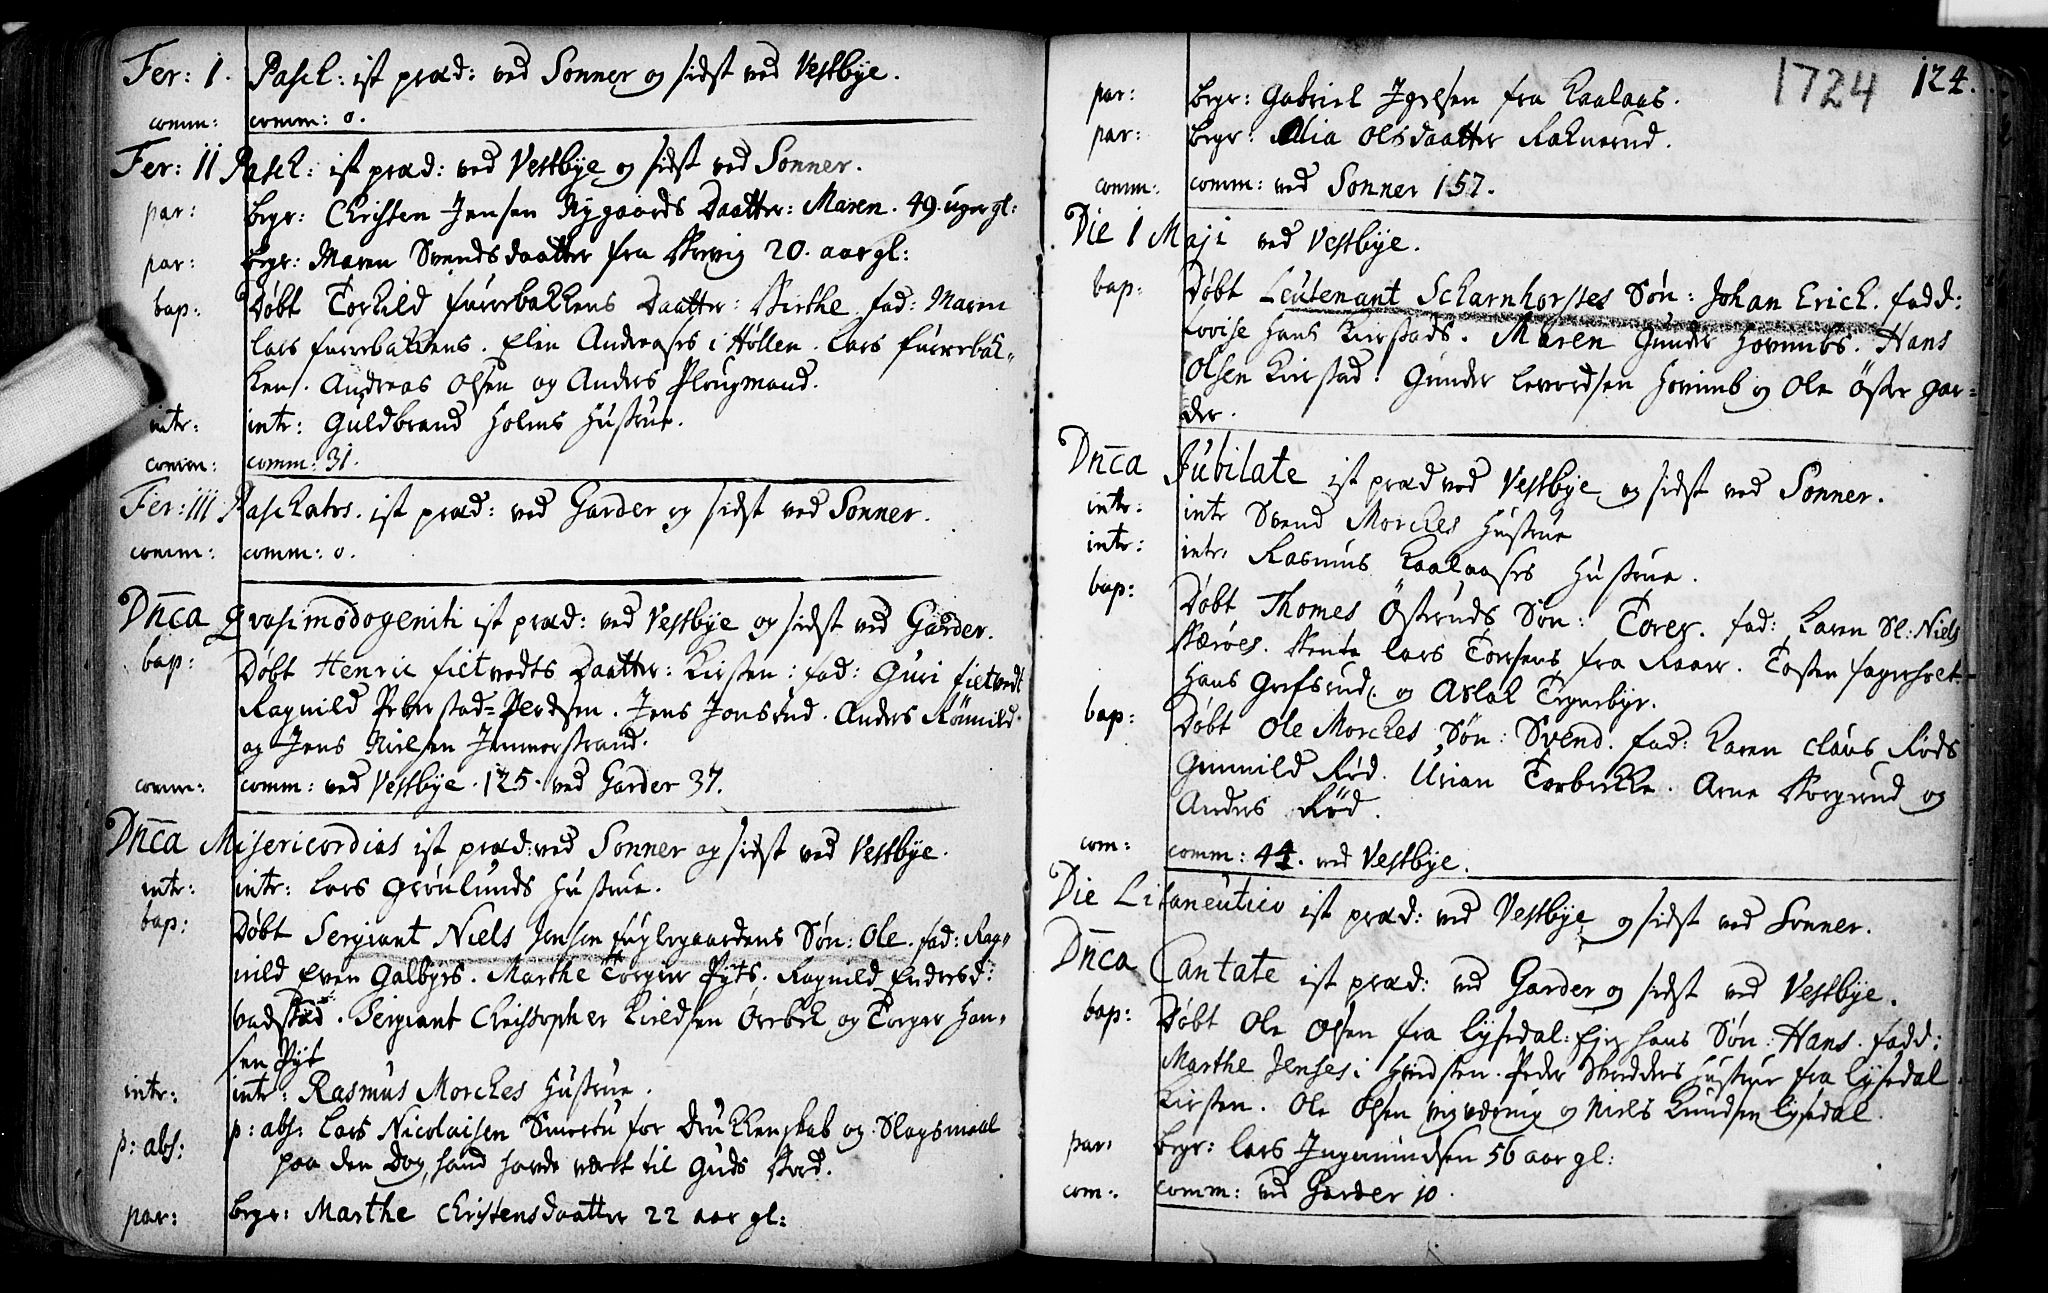 Fer: I. Pasch: ist præd: ved Sonner og sidst ved Vestbye.
comm: comm: 0.
Fer: II Pasch: ist præd: ved Vestbye og sidst ved Sonner.
par: begr: Christen Jensen Nygaards Daatter: Maren. 49. uger gl:
par: begr: Maren Svendsdaatter fra 20. aar gl:
bap: Døbt Torkild furrebakkens Daatter: Birthe. fad: Maren
Lars furrebakkens. Elin Andreases i Høllen. Lars furrebak=
kens. Andreas Olsen og Anders Plougmand.
intr: intr: Guldbrand Holms Hustrue.
comm: comm: 31.
Fer: III Paschatos. ist præd: ved Garder og sidst ved Sonner.
comm: comm: 0.
Dnca Qvasimodogeniti ist præd: ved Vestbye og sidst ved Garder.
bap: Døbt Henric fletvedts Daatter: Kirsten: fad: Guri fletvedt
Ragnild Pederstad= Pedersen. Jens Jonsrud. Anders Rømild.
og Jens Nielsen Jemmerstrand.
comm: comm: ved Vestbye. 125. ved Garder 37.
Dnca Misericordias ist præd: ved Sonner og sidst ved Vestbye.
intr: intr: Lars Grønlunds Hustrue.
bap: Døbt Sergiant Niels Jensen fuglegaardens Søn: Ole. fad: Rag=
nild Even Galbyes. Marthe Torger Pyts. Ragnild Endersd:
badstad. Sergiant Christopher Kieldsen Orebek og Torger Han=
sen Pyt
intr: intr: Rasmus Morches Hustrue.
p: abs: p: abs: Lars Nicolaisen Smortu for Drukkenskab og Slagsmaal
paa den Dag, hand hafde vært til Guds Bord.
par: begr: Marthe Christensdaatter 22 aar gl:
1724 124.
par: begr: Gabriel Igelsen fra Kaalaas.
par: begr: Alia Olsdaatter Raknerud.
comm: comm: ved Sonner 157.
Die 1 Maji ved Vestbye.
bap: Døbt Leutenant Scharnhorstes Søn: Johan Erich. fadd:
Lovise Hans Kirstads. Maren Gunder Hovimbs. Hans
Olsen Kirstad. Gunder Levordsen Hovimb og Ole Öster Gar=
der.
Dnca Jubilate ist præd ved Vestbye og sidst ved Sonner.
intr: intr Svend Morches Hustrue
intr: intr: Rasmus Kaalaases Hustrue.
bap: Døbt Thomes Österuds Søn: Torer. fad: Karen Sl: Niels
Bente Lars Toresens fra Raar. Tosten fagerholt.
Hans Grefsrud. og Aslak Tegnebyr.
bap: Døbt Ole Morches Søn: Svend. fad: Karen Claus Røds
Gunnild Rød. Urian Torbekke. Arne Borgerud og
Anders Rød.
com: comm: 44. ved Vestbye.
Die Litaneutico ist præd: ved Vestbye og sidst ved Sonner.
Dnca Cantate ist præd: ved Garder og sidst ved Vestbye.
bap: Døbt Ole Olsen fra Lysedal: Eje hans Søn: Hans. fadd:
Marthe Jenses i Peder Skredders Hustrue fra Lysedal
Kirsten. Ole Olsen og Niels Knudsen Lysedal.
par: begr: Lars Ingemundsen 56 aar gl:
com: comm: ved Garder 10.